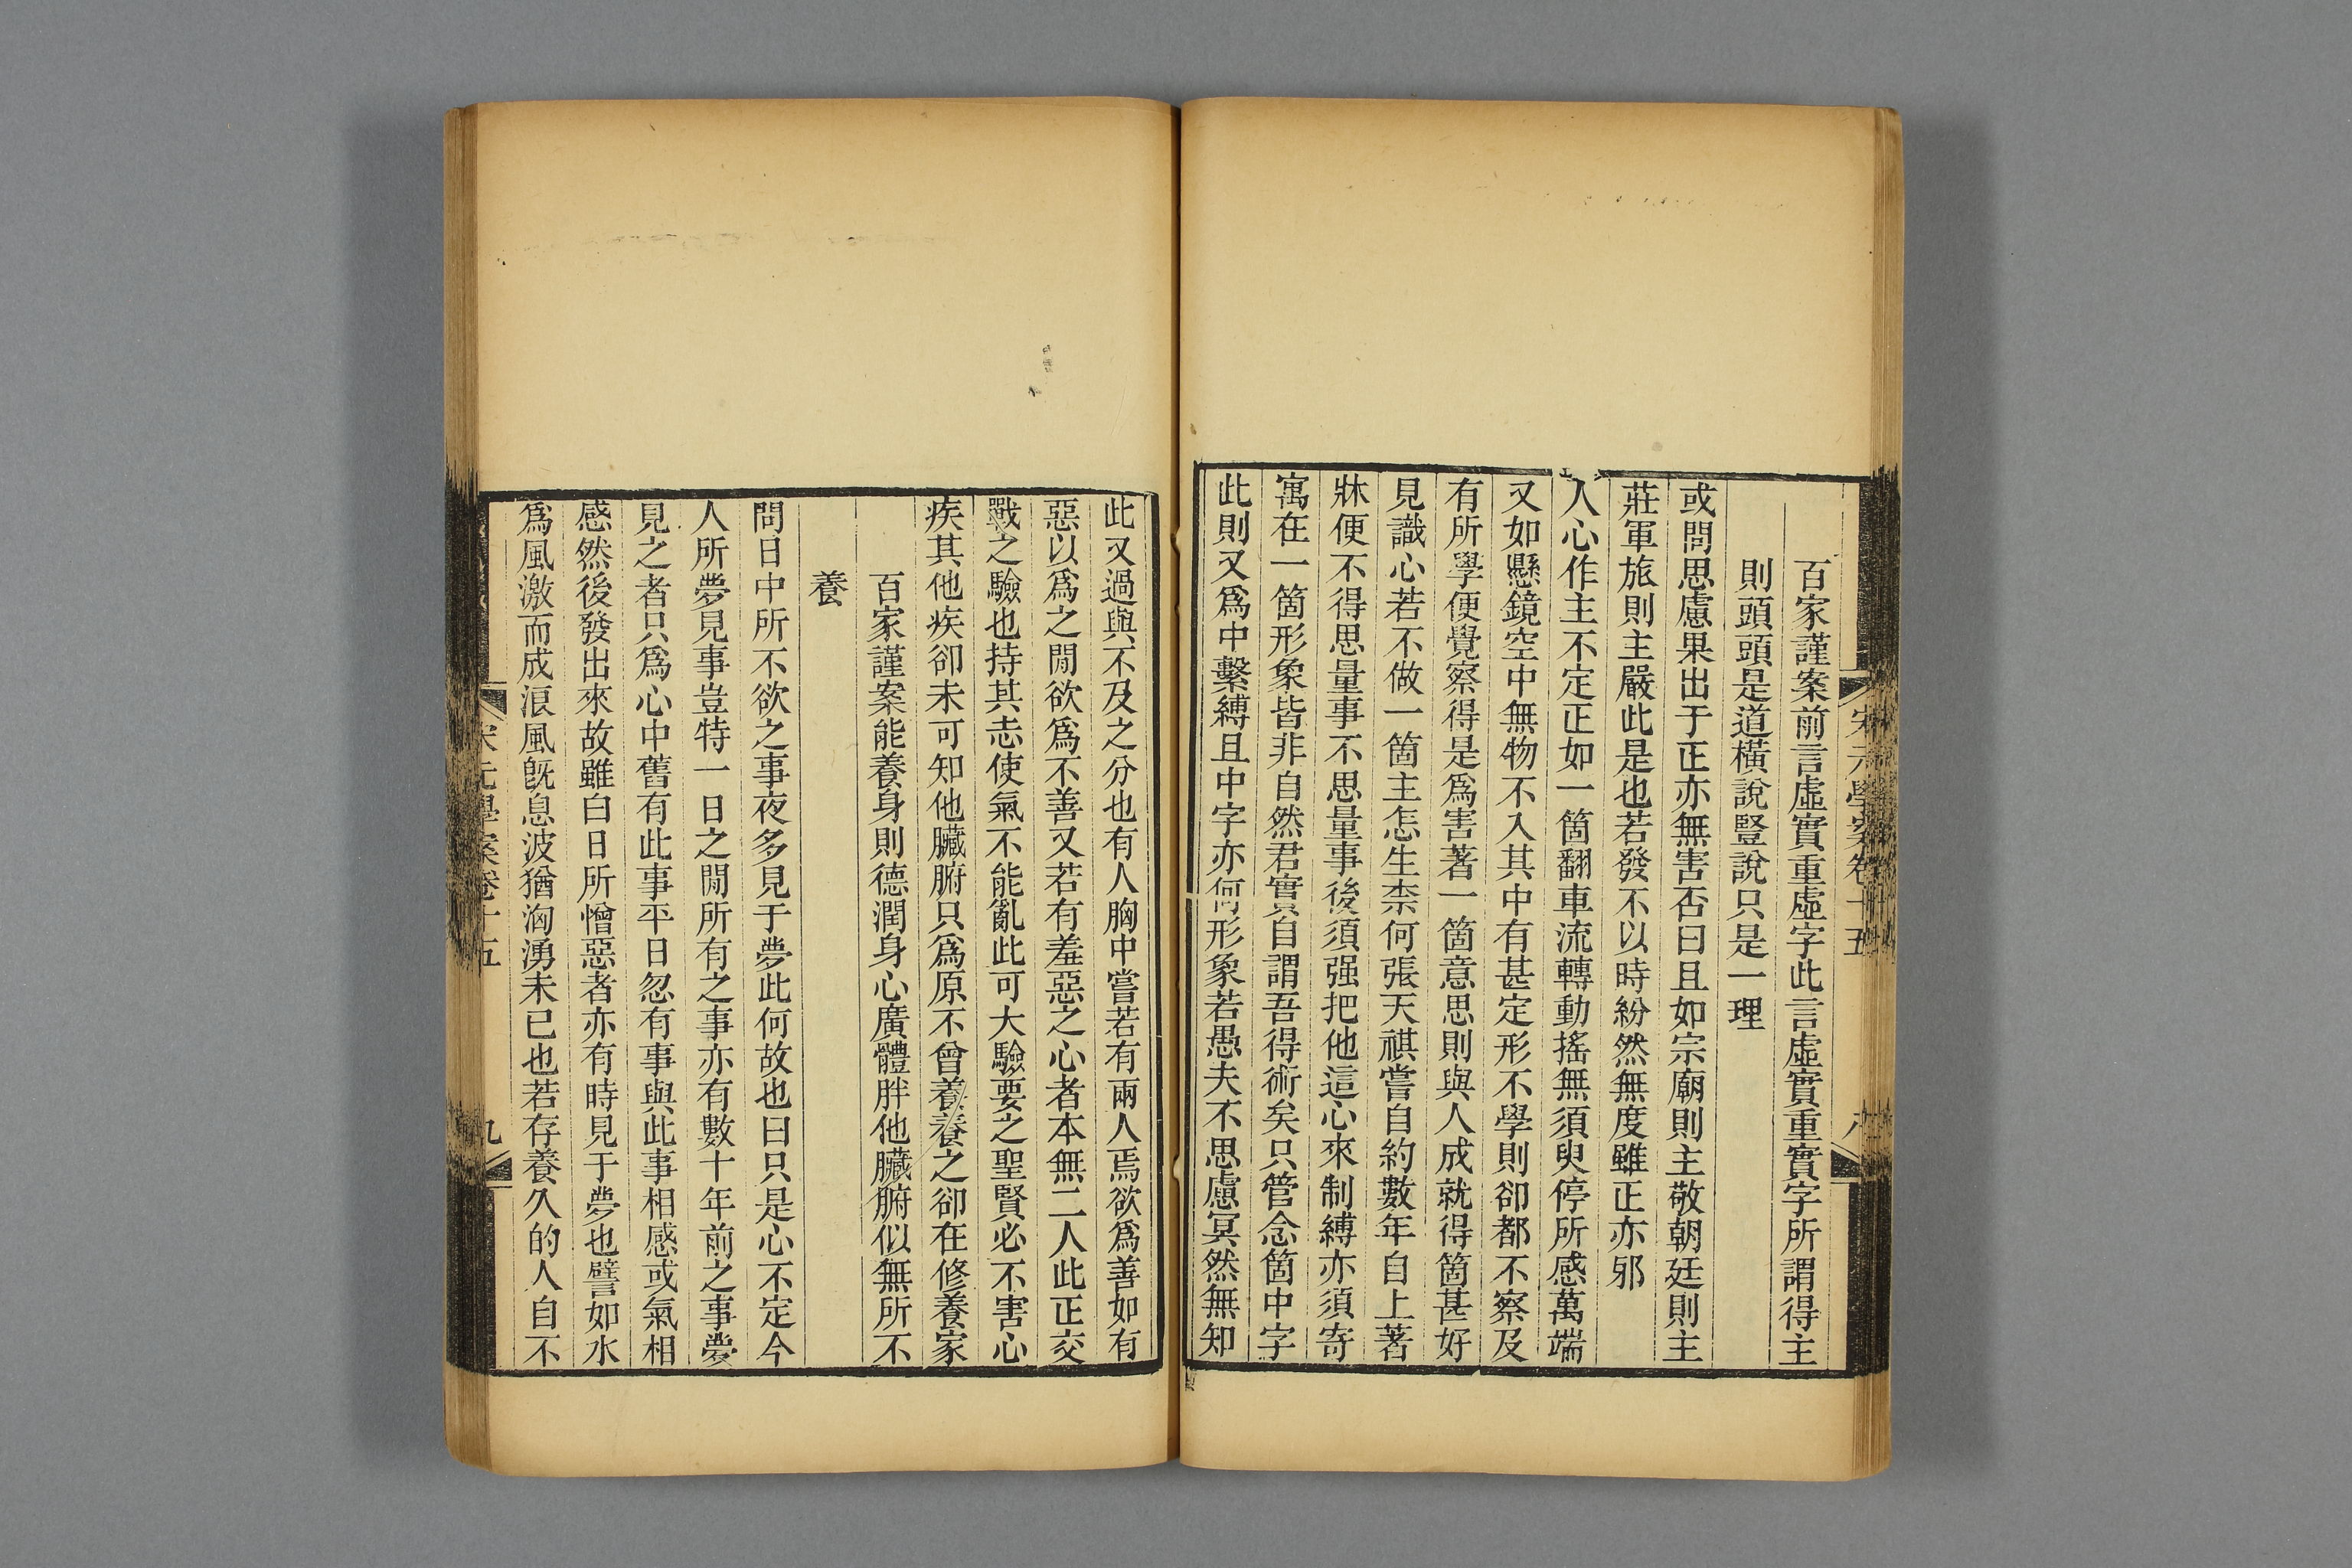 宋元學案卷十五
八
百家謹案前言虛實重虛字此言虛實重實字所謂得主
則頭頭是道橫說豎說只是一理
或問思慮果出于正亦無害否曰且如宗廟則主敬朝廷則主
莊軍旅則主嚴此是也若發不以時紛然無度雖正亦邪
人心作主不定正如一箇翻車流轉動搖無須臾停所感萬端
又如懸鏡空中無物不入其中有甚定形不學則卻都不察及
有所學便覺察得是爲害著一箇意思則與人成就得箇甚好
見識心若不做一箇主怎生柰何張天祺嘗自約數年自上著
牀便不得思量事不思量事後須强把他這心來制縛亦須寄
寓在一箇形象皆非自然君實自謂吾得術矣只管念箇中字
此則又爲中繫縛且中字亦何形象若愚夫不思慮冥然無知
此又過與不及之分也有人胸中嘗若有兩人焉欲爲善如有
惡以爲之閒欲爲不善又若有羞惡之心者本無二人此正交
戰之驗也持其志使氣不能亂此可大驗要之聖賢必不害心
疾其他疾卻未可知他臟腑只爲原不曾養養之卻在修養家
百家謹案能養身則德潤身心廣體胖他臟腑似無所不
養
問日中所不欲之事夜多見于夢此何故也曰只是心不定今
人所夢見事豈特一日之閒所有之事亦有數十年前之事夢
見之者只爲心中舊有此事平日忽有事與此事相感或氣相
感然後發出來故雖白日所憎惡者亦有時見于夢也譬如水
爲風激而成浪風旣息波猶洶湧未已也若存養久的人自不
宋元學案卷十五
九